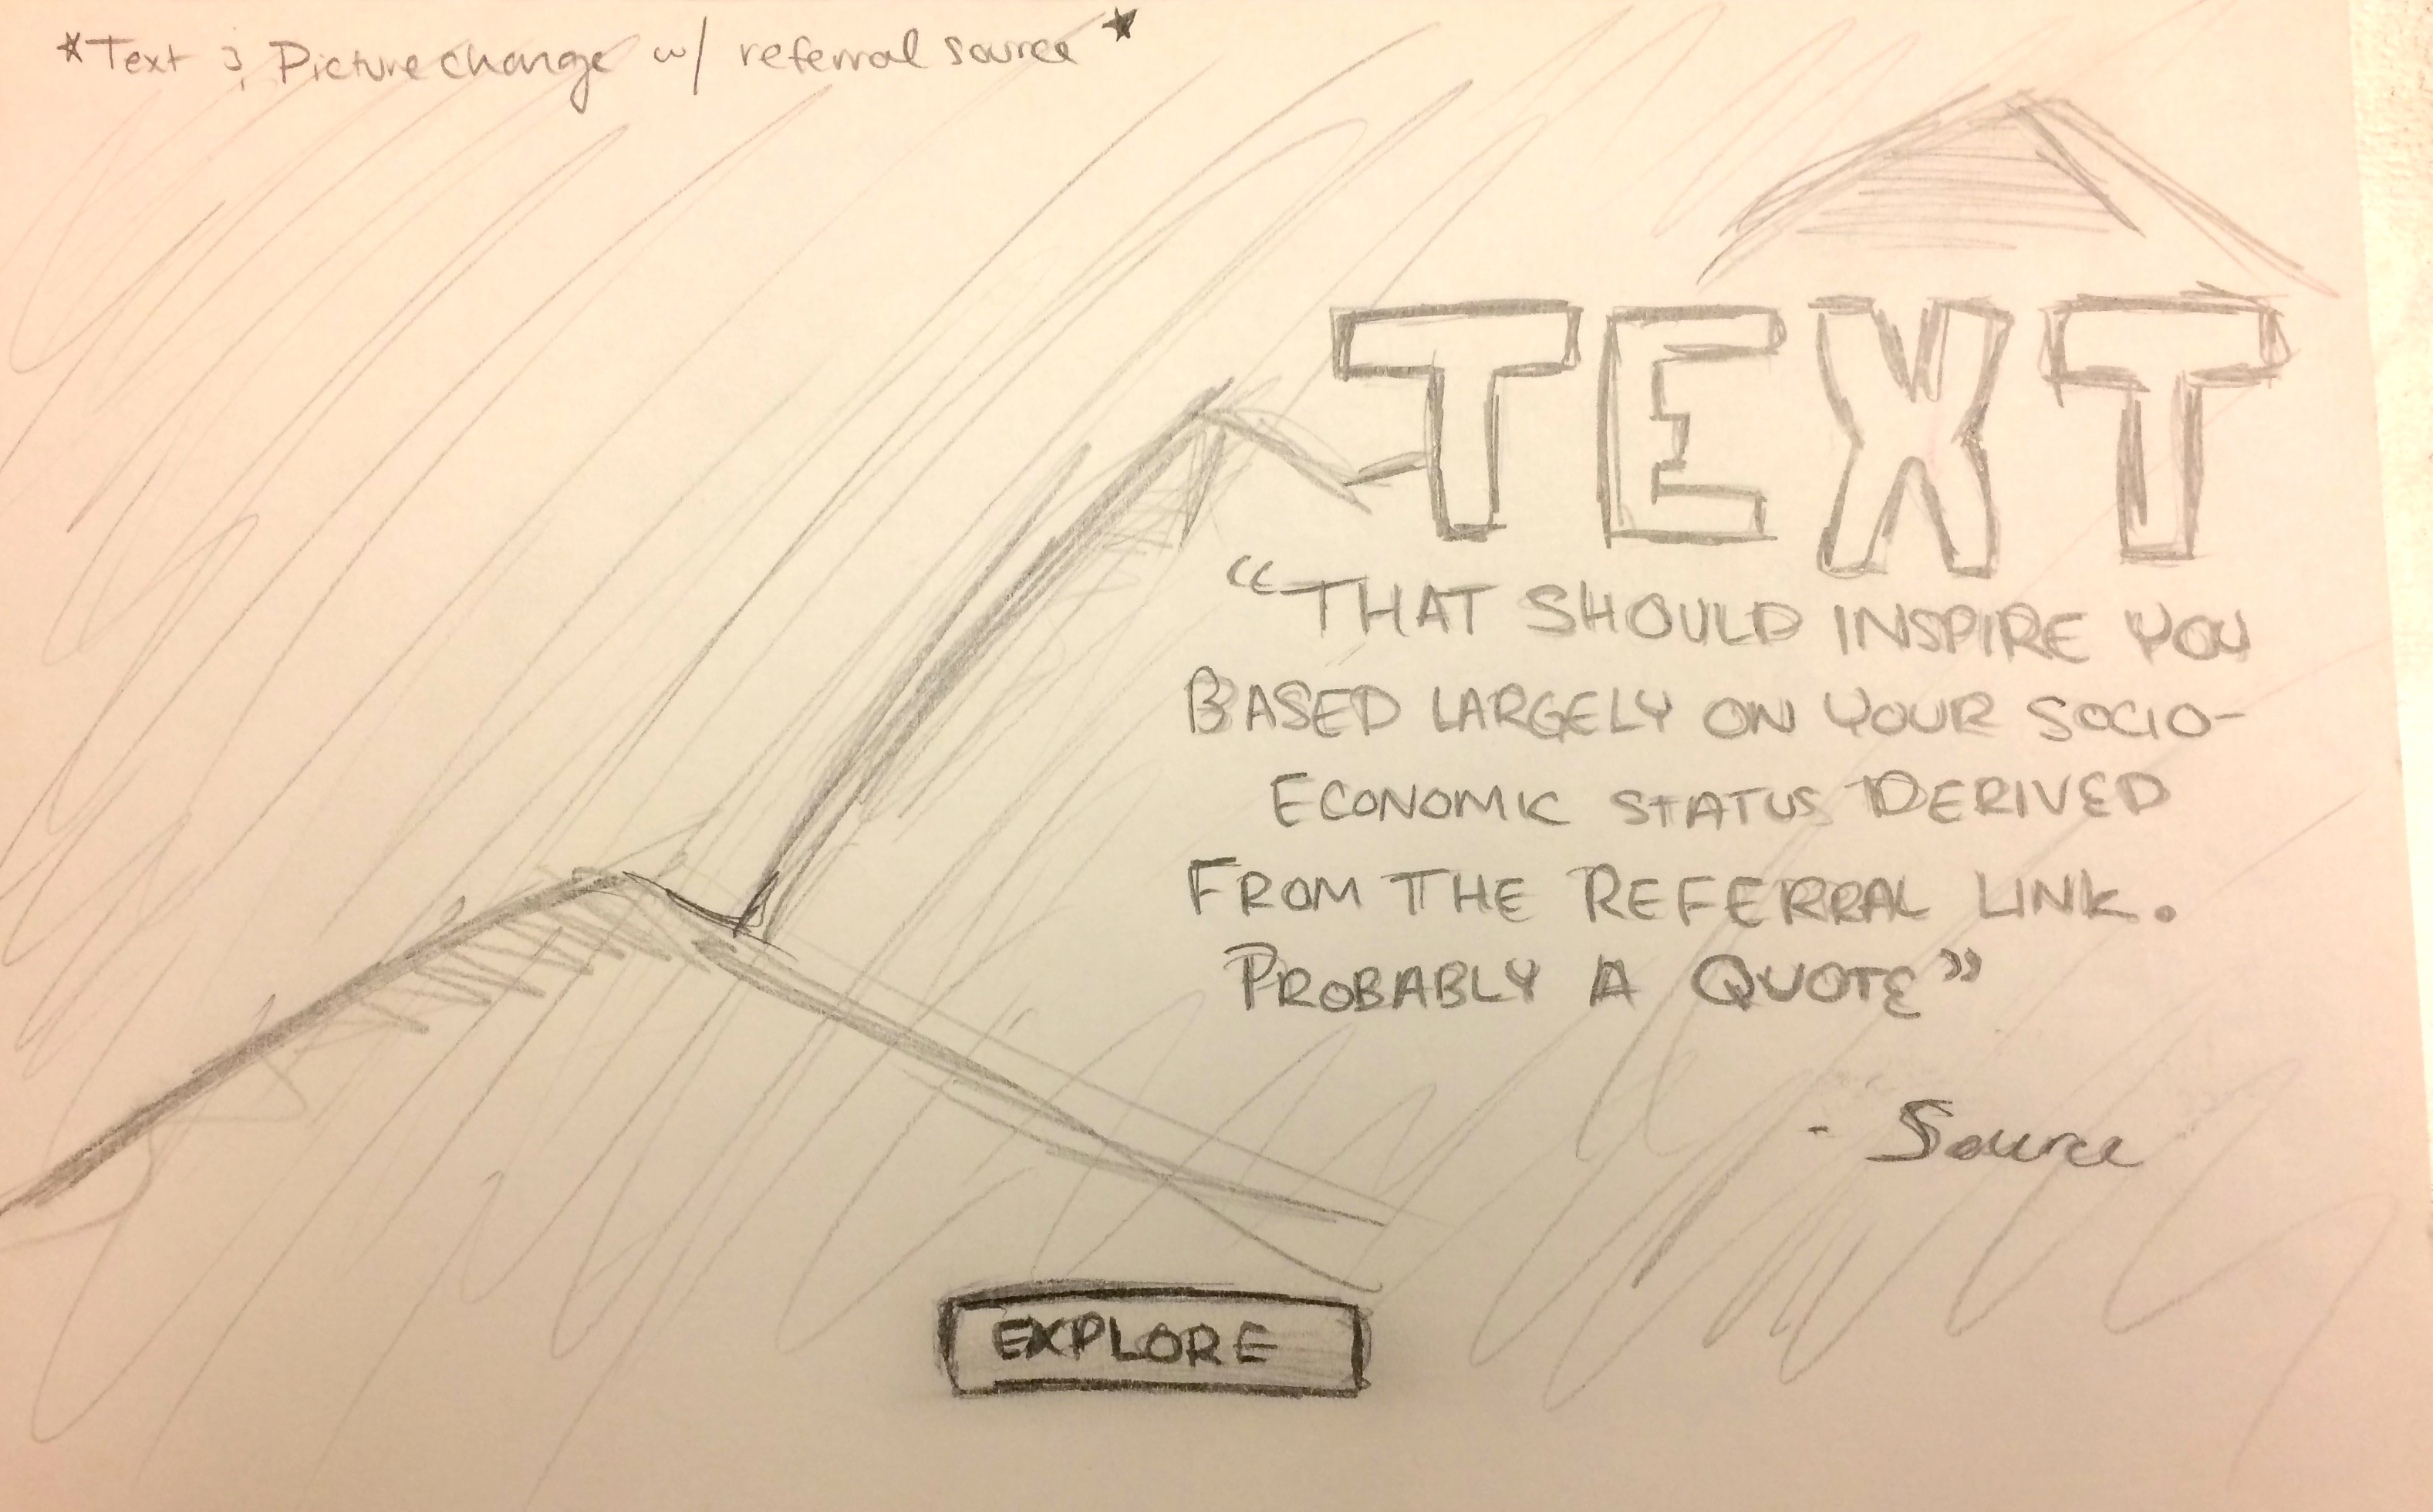 *Text & Picture change w/ referral source*
TEXT
"THAT SHOULD INSPIRE YOU
BASED LARGELY ON YOUR SOCIO-
ECONOMIC STATUS DERIVED
FROM THE REFERRAL LINK.
PROBABLY A QUOTE"
- Source
EXPLORE